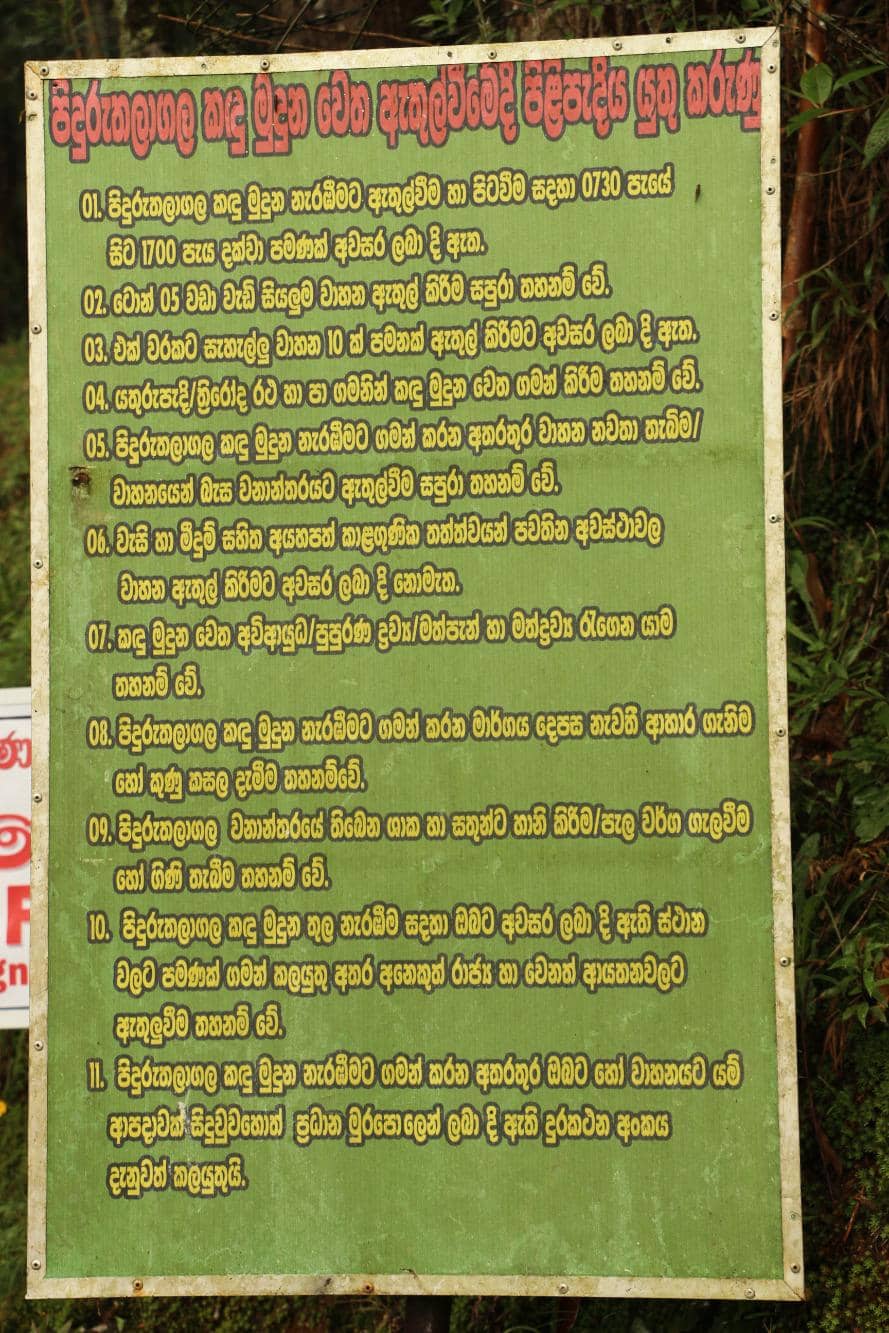 පිදුරුතලාගල කඳු මුදුන වෙත ඇතුල්වීමේදි පිළිපැදිය යුතු කරුණු
01. පිදුරුතලාගල කඳු මුදුන නැරඹීමට ඇතුල්වීම හා පිටවීම සදහා 0730 පැයේ
සිට 1700 පැය දක්වා පමණක් අවසර ලබා දි ඇත.
02. ටොන් 05 වඩා වැඩි සියලුම වාහන ඇතුල් කිරිම සපුරා තහනම් වේ.
03. එක් වරකට සැහැල්ලු වාහන 10 ක් පමනක් ඇතුල් කිරිමට අවසර ලබා දි ඇත.
04. යතුරුපැදි/ත්‍රිරෝද රථ හා පා ගමනින් කඳු මුදුන වෙත ගමන් කිරිම තහනම් වේ.
05. පිදුරුතලාගල කඳු මුදුන නැරඹීමට ගමන් කරන අතරතුර වාහන නවතා තැබිම/
වාහනයෙන් බැස වනාන්තරයට ඇතුල්වීම සපුරා තහනම් වේ.
06. වැසි හා මීදුම් සහිත අයහපත් කාළගුණික තත්ත්වයන් පවතින අවස්ථාවල
වාහන ඇතුල් කිරිමට අවසර ලබා දි නොමැත.
07. කඳු මුදුන වෙත අවිආයුධ/පුපුරණ ද්‍රව්‍ය/මත්පැන් හා මත්ද්‍රව්‍ය රැගෙන යාම
තහනම් වේ.
08. පිදුරුතලාගල කඳු මුදුන නැරඹීමට ගමන් කරන මාර්ගය දෙපස නැවති ආහාර ගැනිම
හෝ කුණු කසල දැමීම තහනම්වේ.
09. පිදුරුතලාගල වනාන්තරයේ තිබෙන ශාක හා සතුන්ට හානි කිරිම/පැල වර්ග ගැලවීම
හෝ ගිණි තැබීම තහනම් වේ.
10. පිදුරුතලාගල කඳු මුදුන තුල නැරඹීම සදහා ඔබට අවසර ලබා දි ඇති ස්ථාන
වලට පමණක් ගමන් කලයුතු අතර අනෙකුත් රාජ්‍ය හා වෙනත් ආයතනවලට
ඇතුලුවීම තහනම් වේ.
11. පිදුරුතලාගල කඳු මුදුන නැරඹීමට ගමන් කරන අතරතුර ඔබට හෝ වාහනයට යම්
ආපදාවක් සිදුවුවහොත් ප්‍රධාන මුරපොලෙන් ලබා දි ඇති දුරකථන අංකය
දැනුවත් කලයුතුයි.